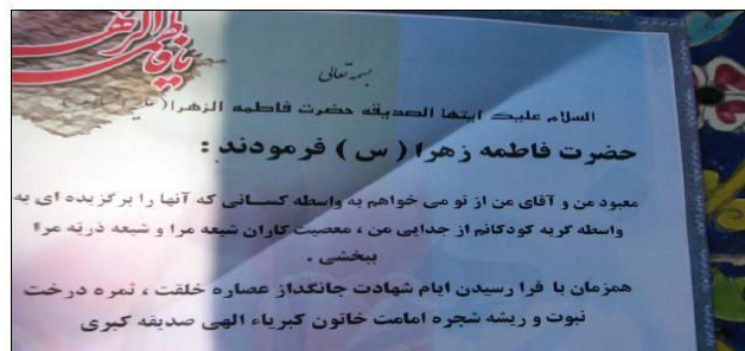 یا فاطمة الزهرا
بسمه تعالی
السلام علیک ایتها الصدیقه حضرت فاطمه الزهرا (
حضرت فاطمه زهرا ( س ) فرمودند :
معبود من و آقای من از تو می خواهم به واسطه کسانی که آنها را برگزیده ای به
واسطه گریه کودکانم از جدایی من ، معصیت کاران شیعه مرا و شیعه ذریّه مرا
ببخشی .
همزمان با فرا رسیدن ایام شهادت جانگداز عصاره خلقت ، ثمره درخت
نبوت و ریشه شجره امامت خاتون کبریاء الهی صدیقه کبری